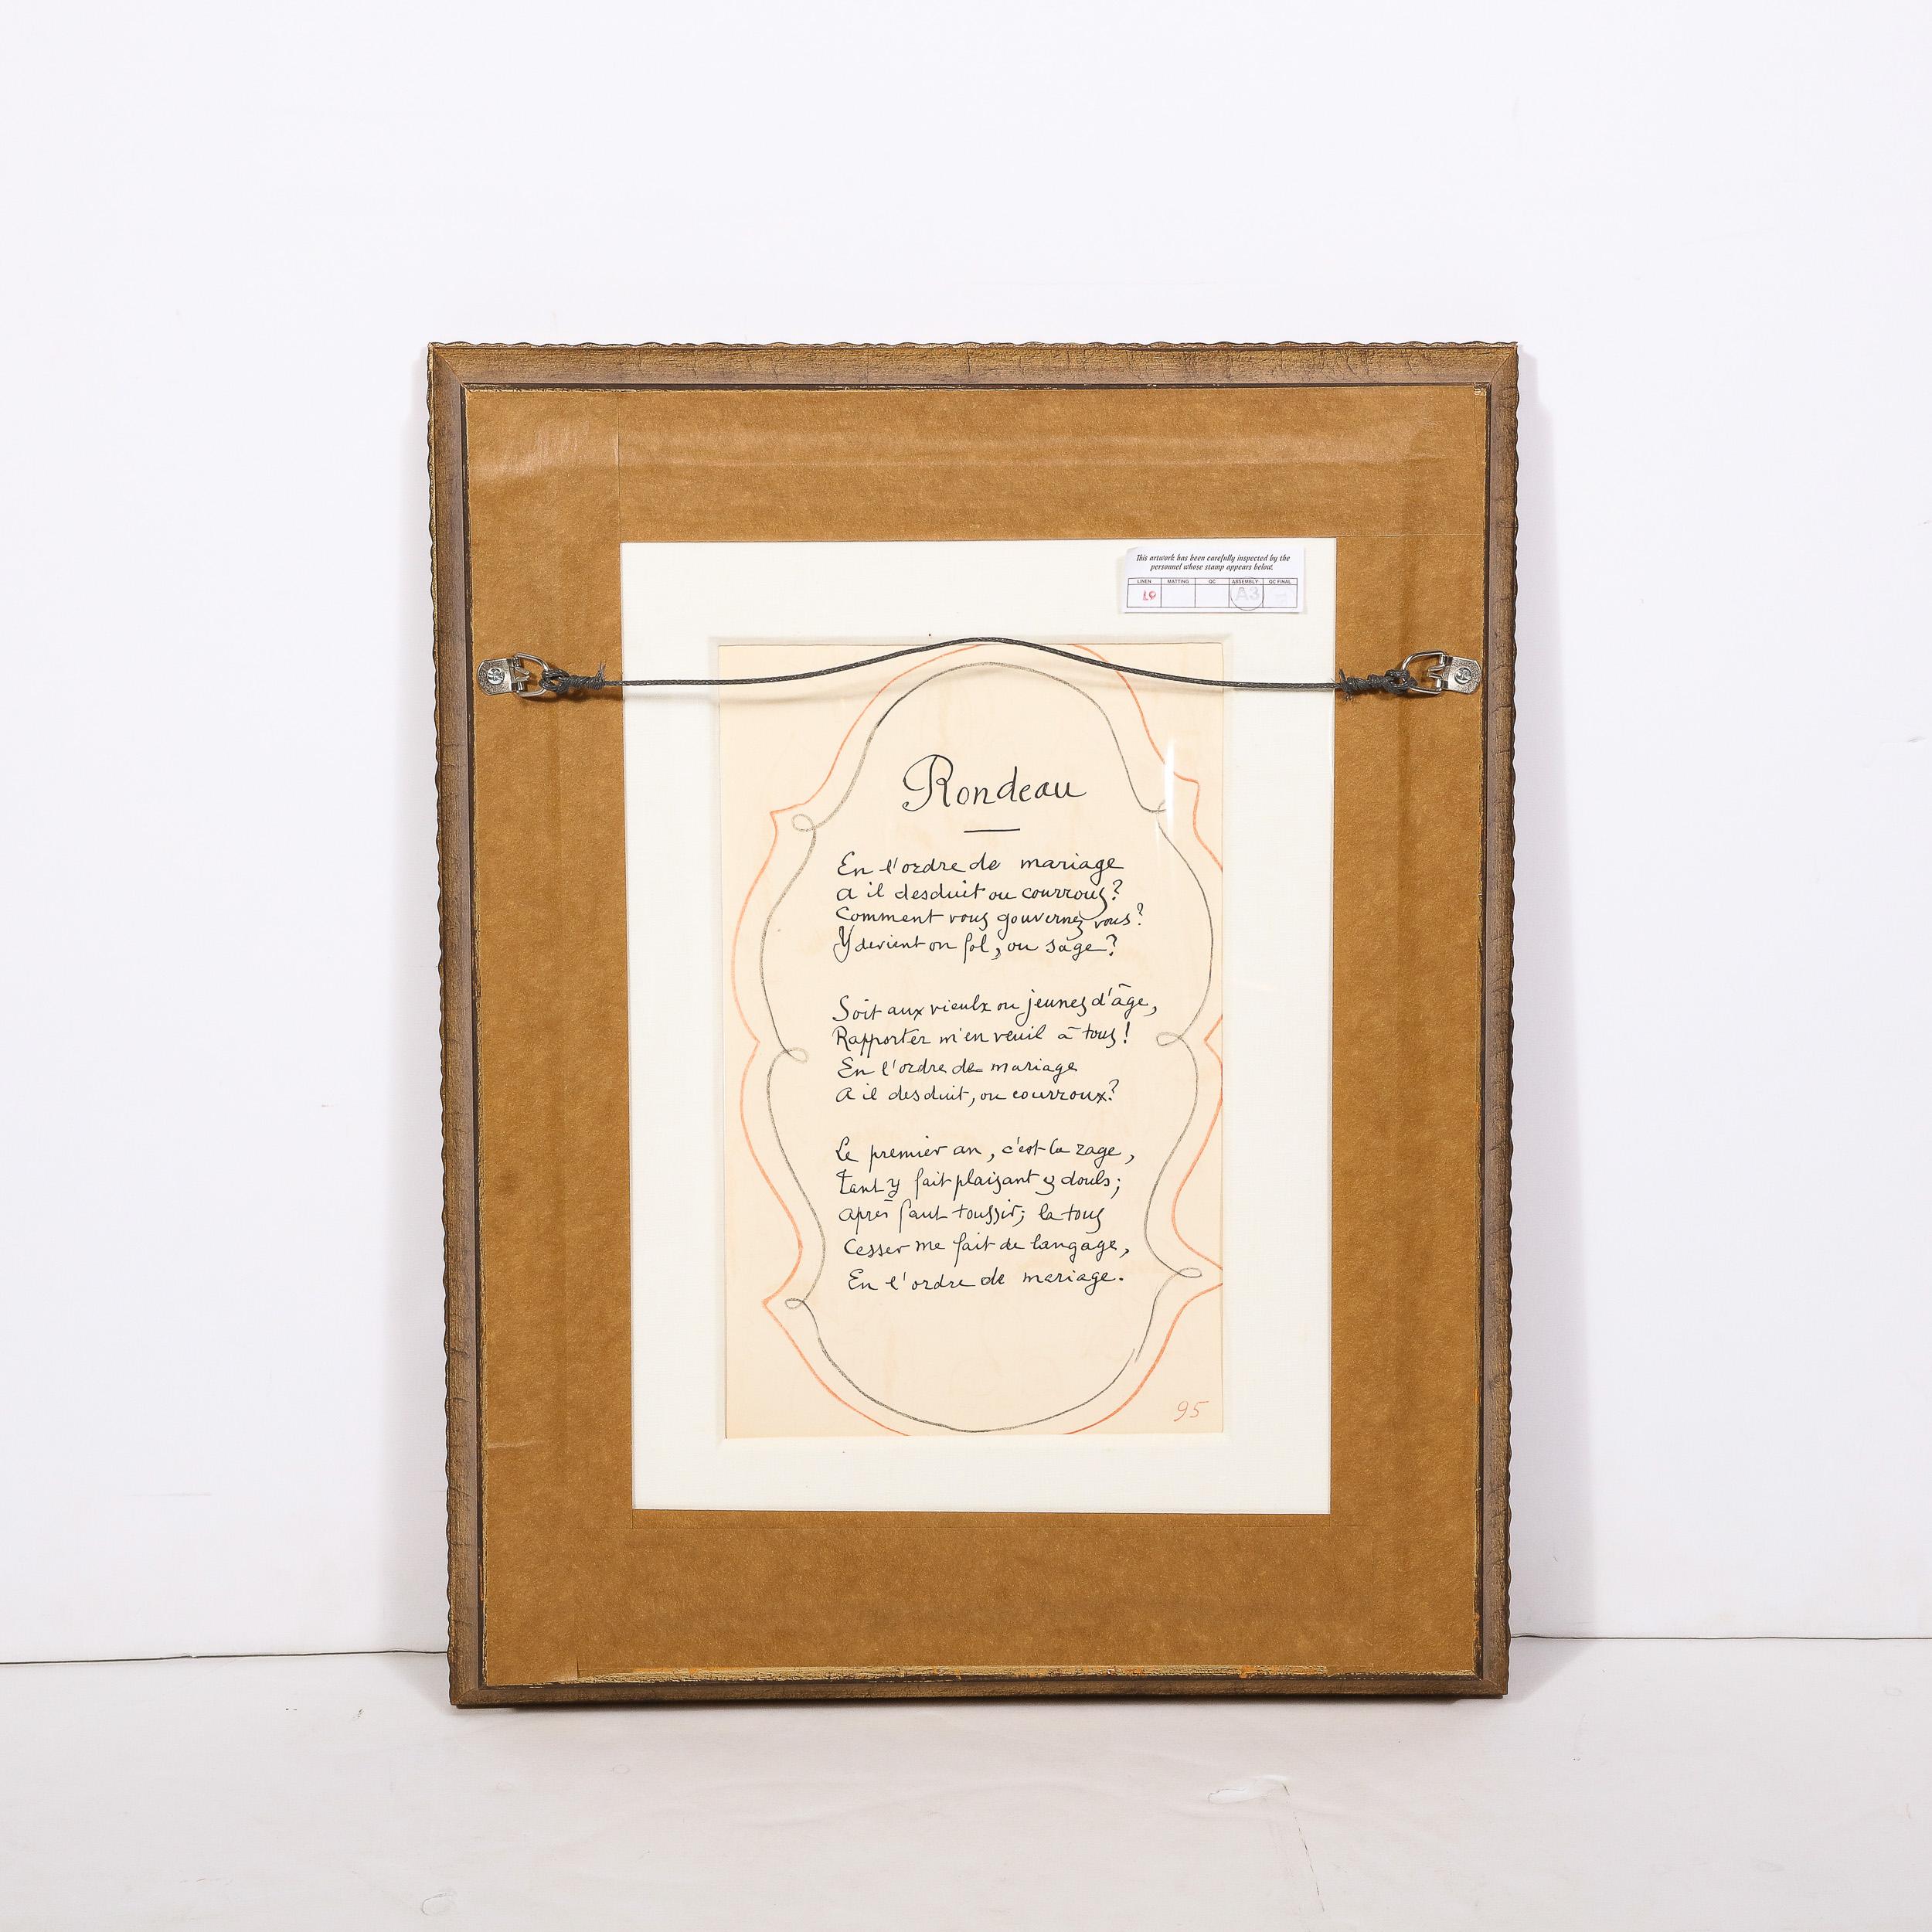 This artwork has been carefully inspected by the
personnel whose stamp appears below.
LINEN MATTING QC ASSEMBLY QC FINAL
LQ A3
Rondeau
En l'ordre de mariage
a il desduit ou courrouz?
Comment vous gouvernez vous?
Y devient on fol, ou sage?
Soit aux vieulx ou jeunes d'âge,
Rapporter m'en veuil à tous!
En l'ordre de mariage
a il desduit, ou courroux?
Le premier an, c'est la rage,
Tant y fait plaisant & doulx;
après faut toussir; la tous
Cesser me fait de langage,
En l'ordre de mariage.
95